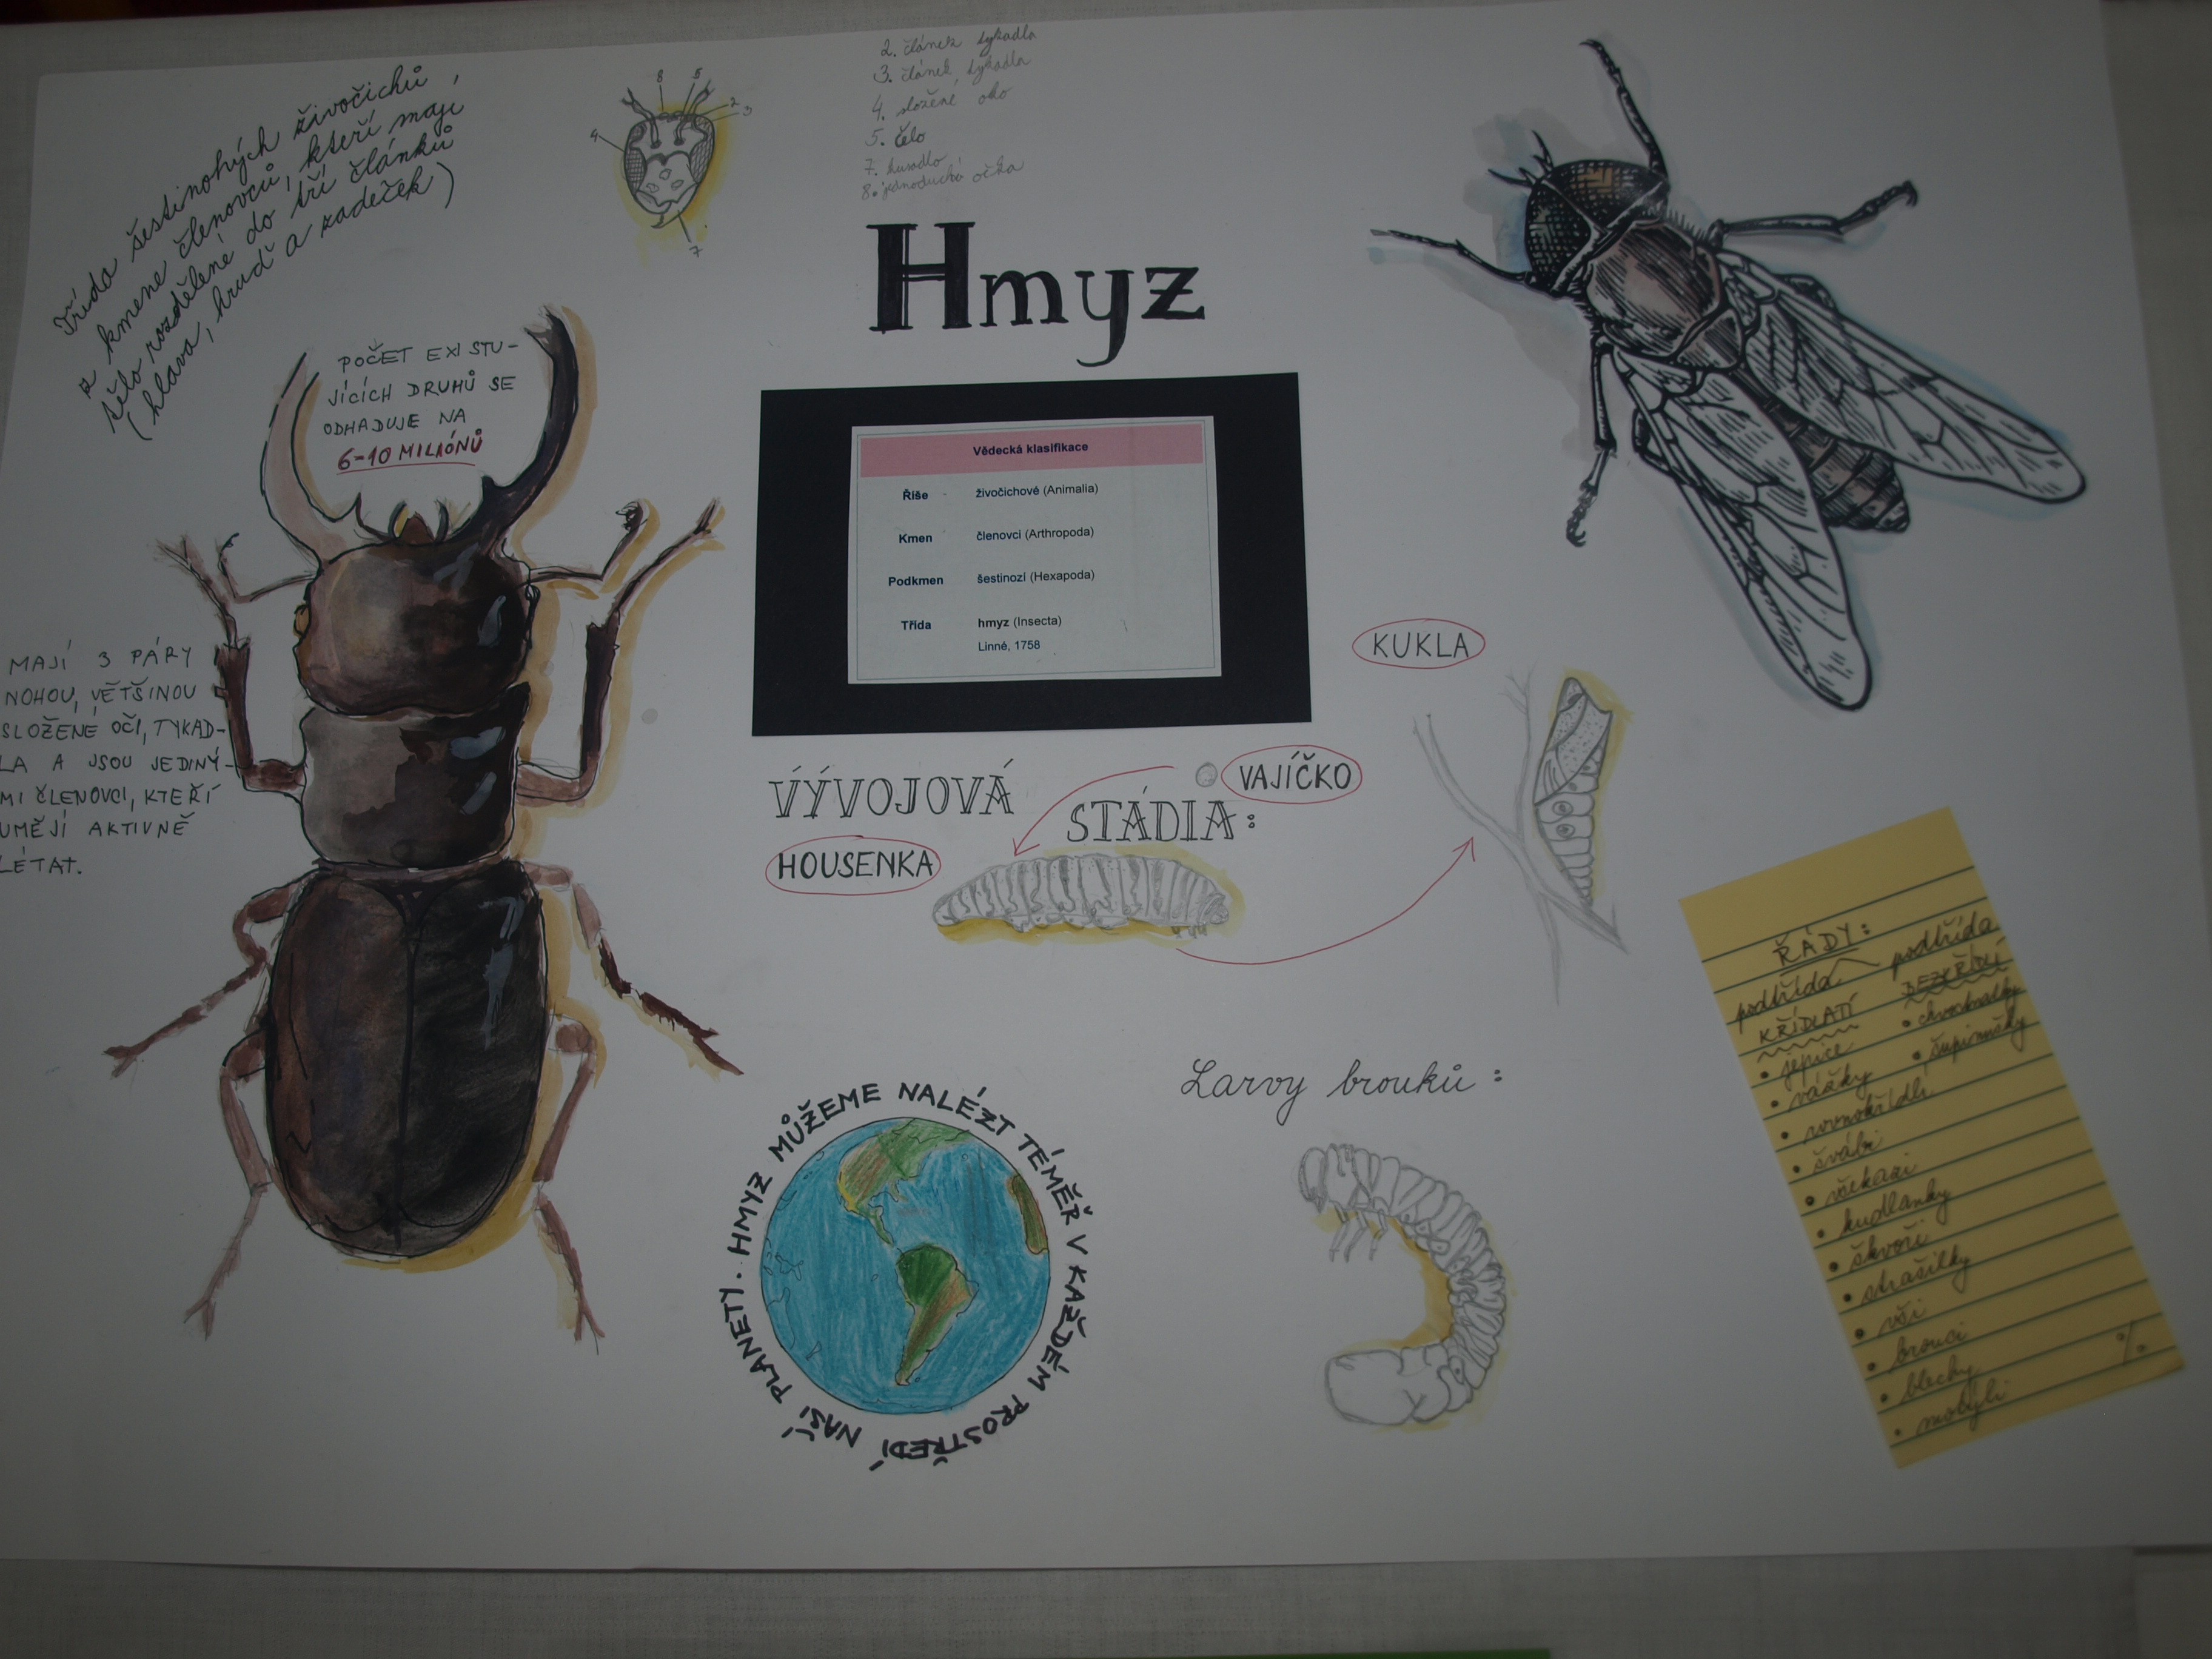 Třída šestinohých živočichů
z kmene členovců, kteří mají
tělo rozdělené do tří článků
(hlava, hruď a zadeček)
2. článek tykadla
3. článek tykadla
4. složené oko
5. čelo
7. kusadlo
8. jednoduchá očka
8
5
2
3
4
7
Hmyz
POČET EXISTU-
JÍCÍCH DRUHŮ SE
ODHADUJE NA
6-10 MILIÓNŮ
Vědecká klasifikace
Říše živočichové (Animalia)
Kmen členovci (Arthropoda)
Podkmen šestinozí (Hexapoda)
Třída hmyz (Insecta)
Linné, 1758
MAJÍ 3 PÁRY
NOHOU, VĚTŠINOU
SLOŽENÉ OČI, TYKAD-
LA A JSOU JEDINÝ-
MI ČLENOVCI, KTEŘÍ
UMĚJÍ AKTIVNĚ
LÉTAT.
KUKLA
VÝVOJOVÁ
STÁDIA:
VAJÍČKO
HOUSENKA
Larvy brouků:
HMYZ MŮŽEME NALÉZT TÉMĚŘ V KAŽDÉM PROSTŘEDÍ NAŠÍ PLANETY.
ŘÁDY:
podtřída
KŘÍDLATÍ
• jepice
• vážky
• rovnokřídlí
• švábi
• všekazi
• kudlanky
• škvoři
• strašilky
• vši
• brouci
• blechy
• motýli
podtřída
BEZKŘÍDLÍ
• chvostnatky
• šupinušky
%